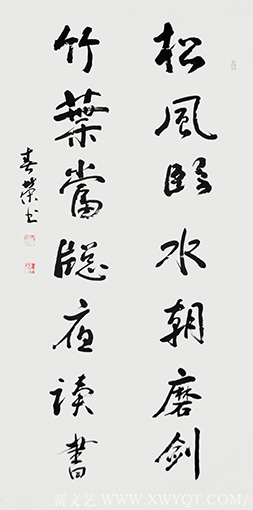 松風臨水朝磨劍
竹葉當牕夜讀書
春榮书
新文艺 www.xwyqt.com/